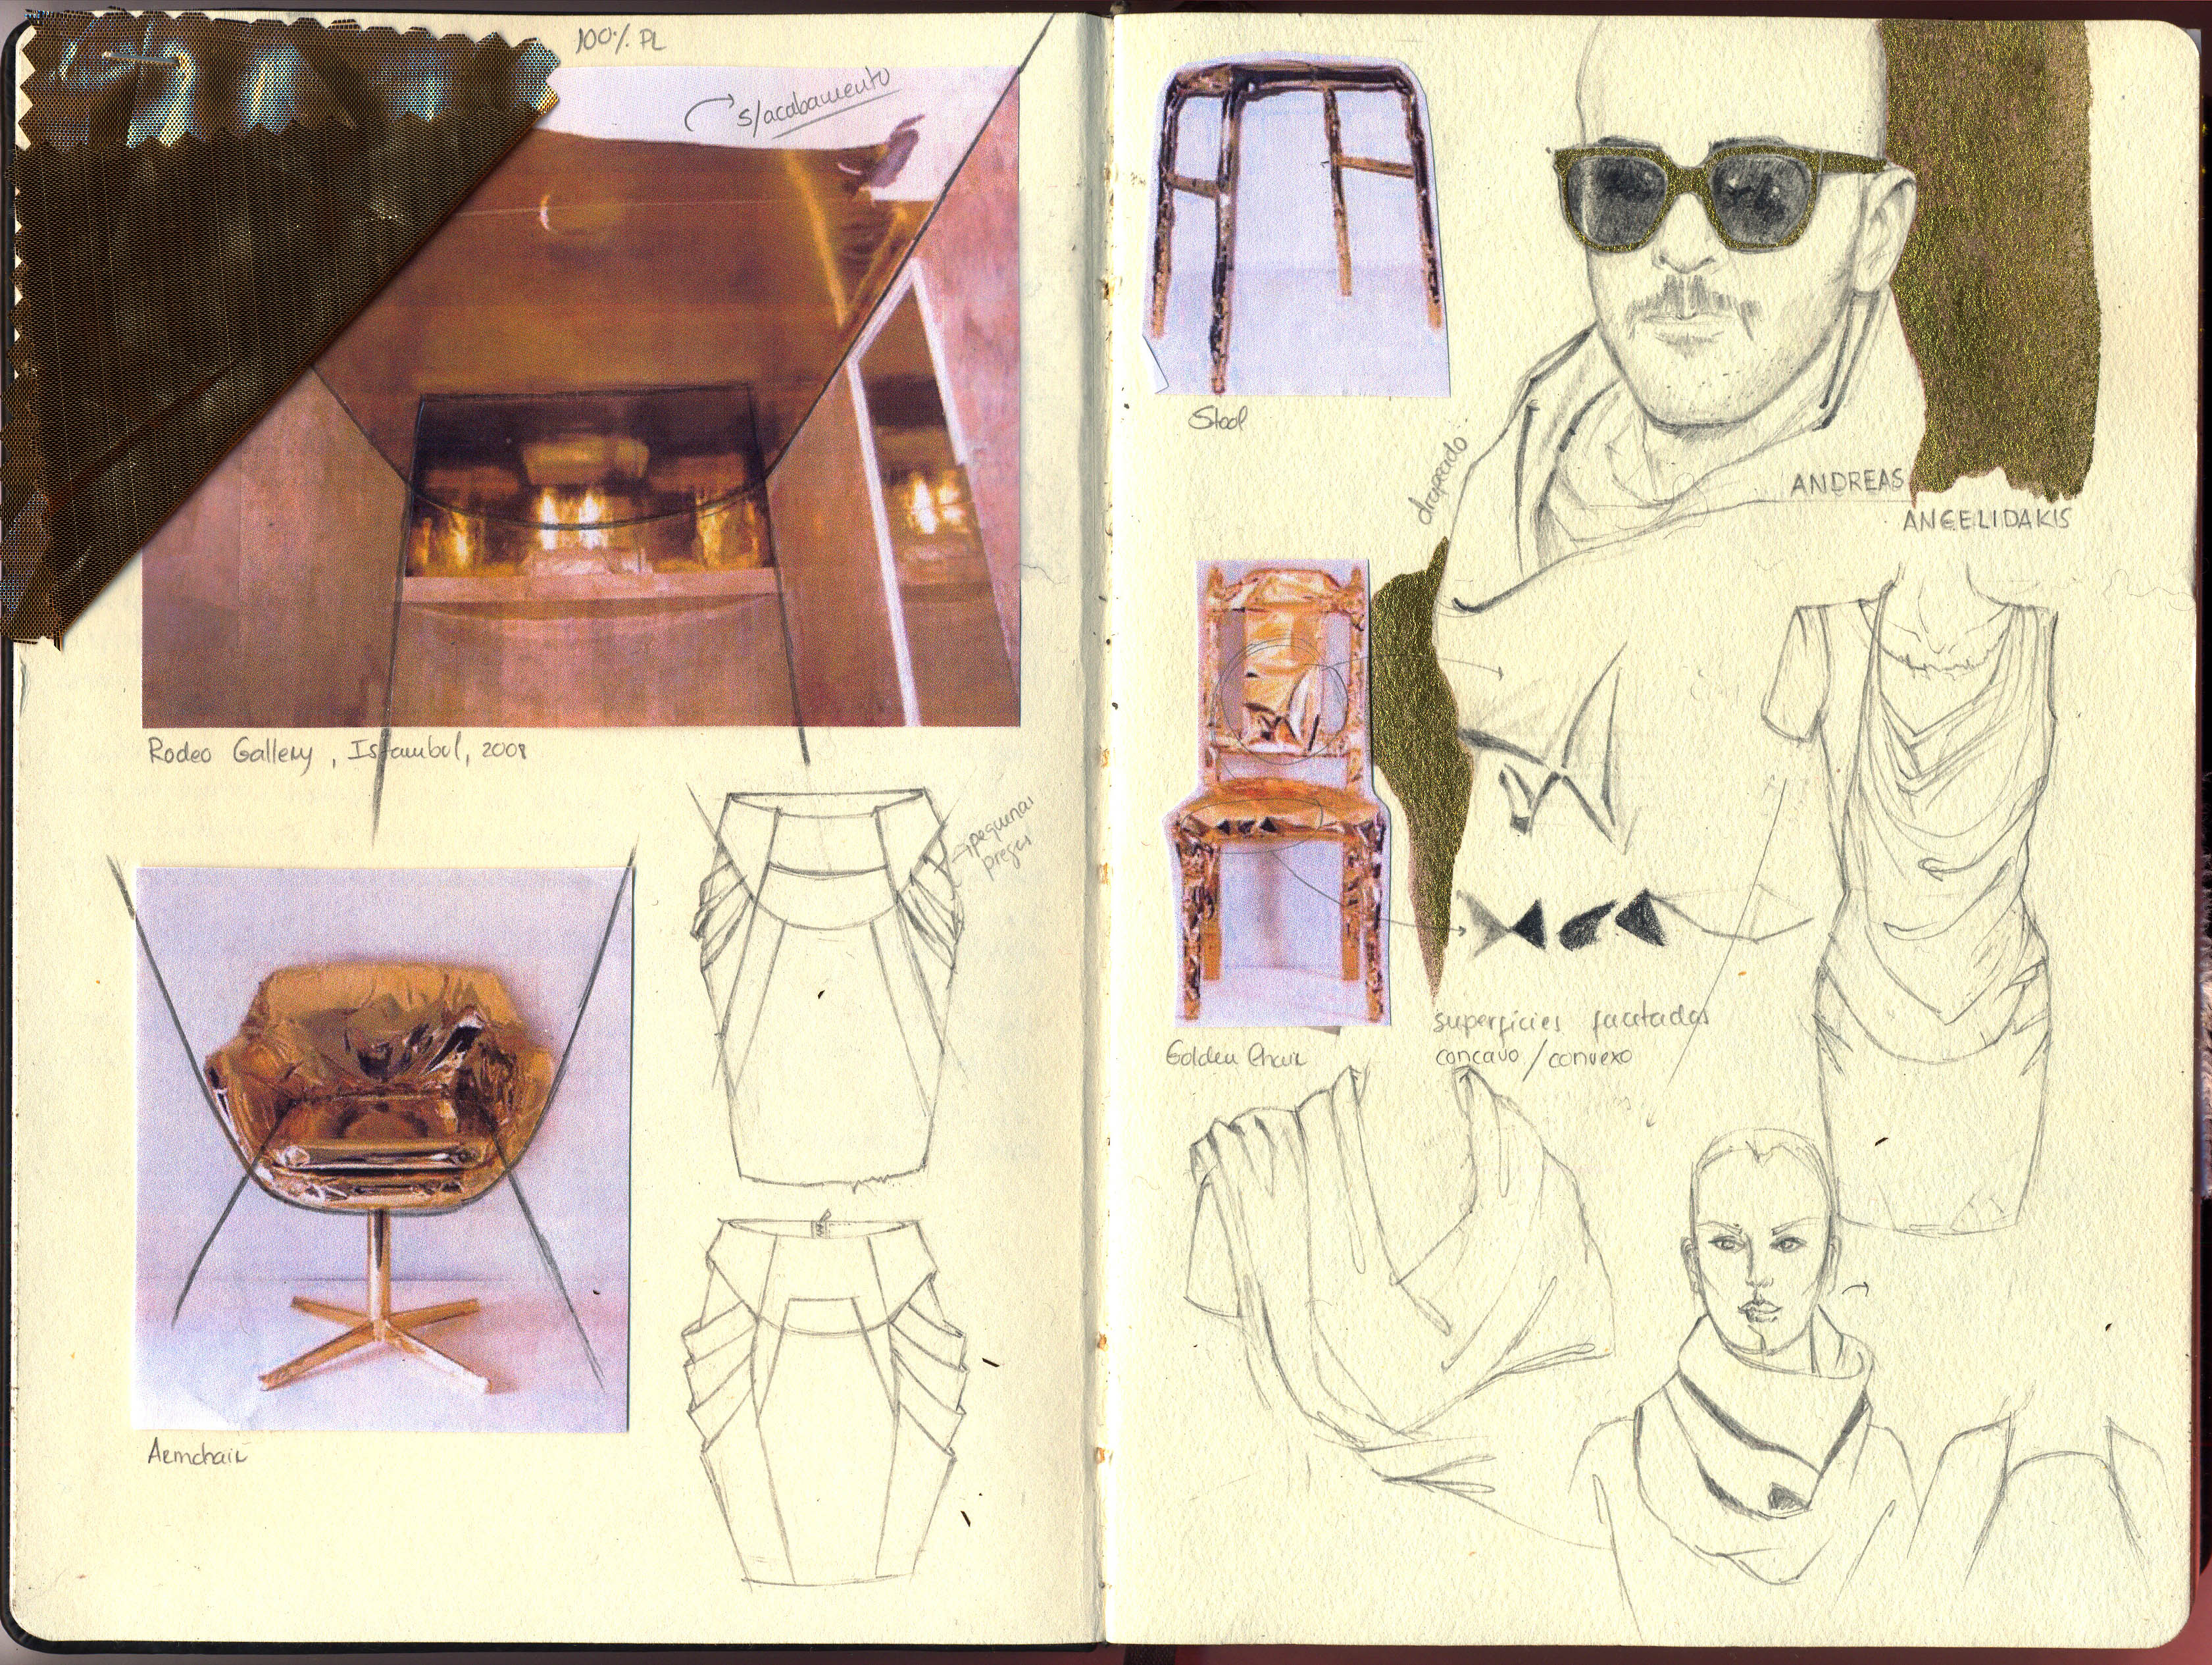 100% PL
s/acabamento
Rodeo Gallery, Istambul, 2008
pequenas
pregas
Armchair
Stool
drapeado
ANDREAS
ANGELIDAKIS
Golden Chair
superficies facetadas
concavo/convexo